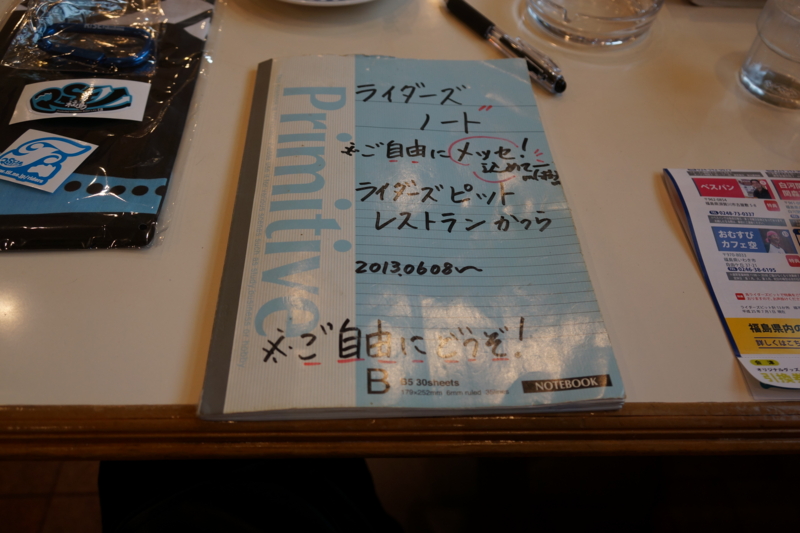 Primitive
ライダーズ
ノート
※ご自由にメッセ!
込めてー
ライダーズピット
レストランかつら
2013.06.08〜
※ご自由にどうぞ!
B B5 30sheets
179×252mm 6mm ruled
NOTEBOOK
ペスパン
0248-73-0337
おむすび
カフェ空
0246-38-6195
福島県内の
詳しくはこち